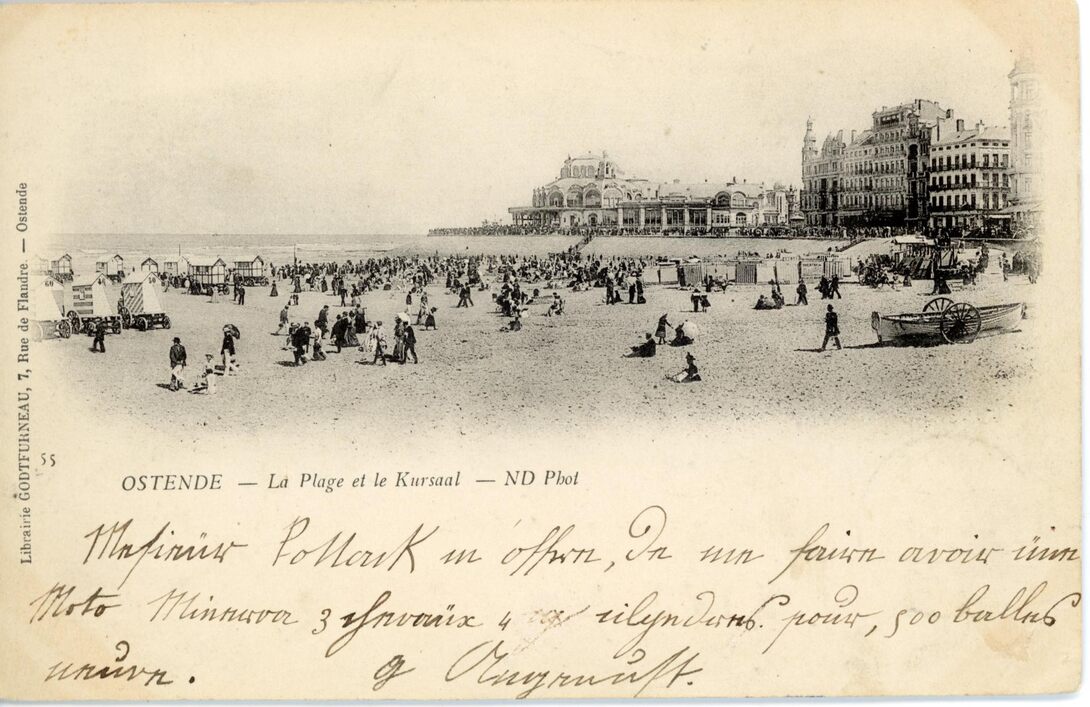 Librairie GODTFURNEAU, 7, Rue de Flandre. — Ostende
55
OSTENDE — La Plage et le Kursaal — ND Phot
Mesieur Pollack m'offre, De me faire avoir üne
Moto Minerva 3 chevaüx 4 cilyndres. pour, 500 balles
neuve.